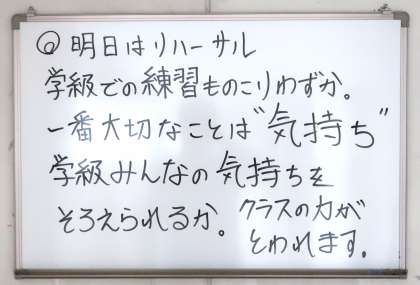 ◎ 明日はリハーサル
学級での練習ものこりわずか。
一番大切なことは"気持ち"
学級みんなの気持ちを
そろえられるか。クラスの力が
とわれます。